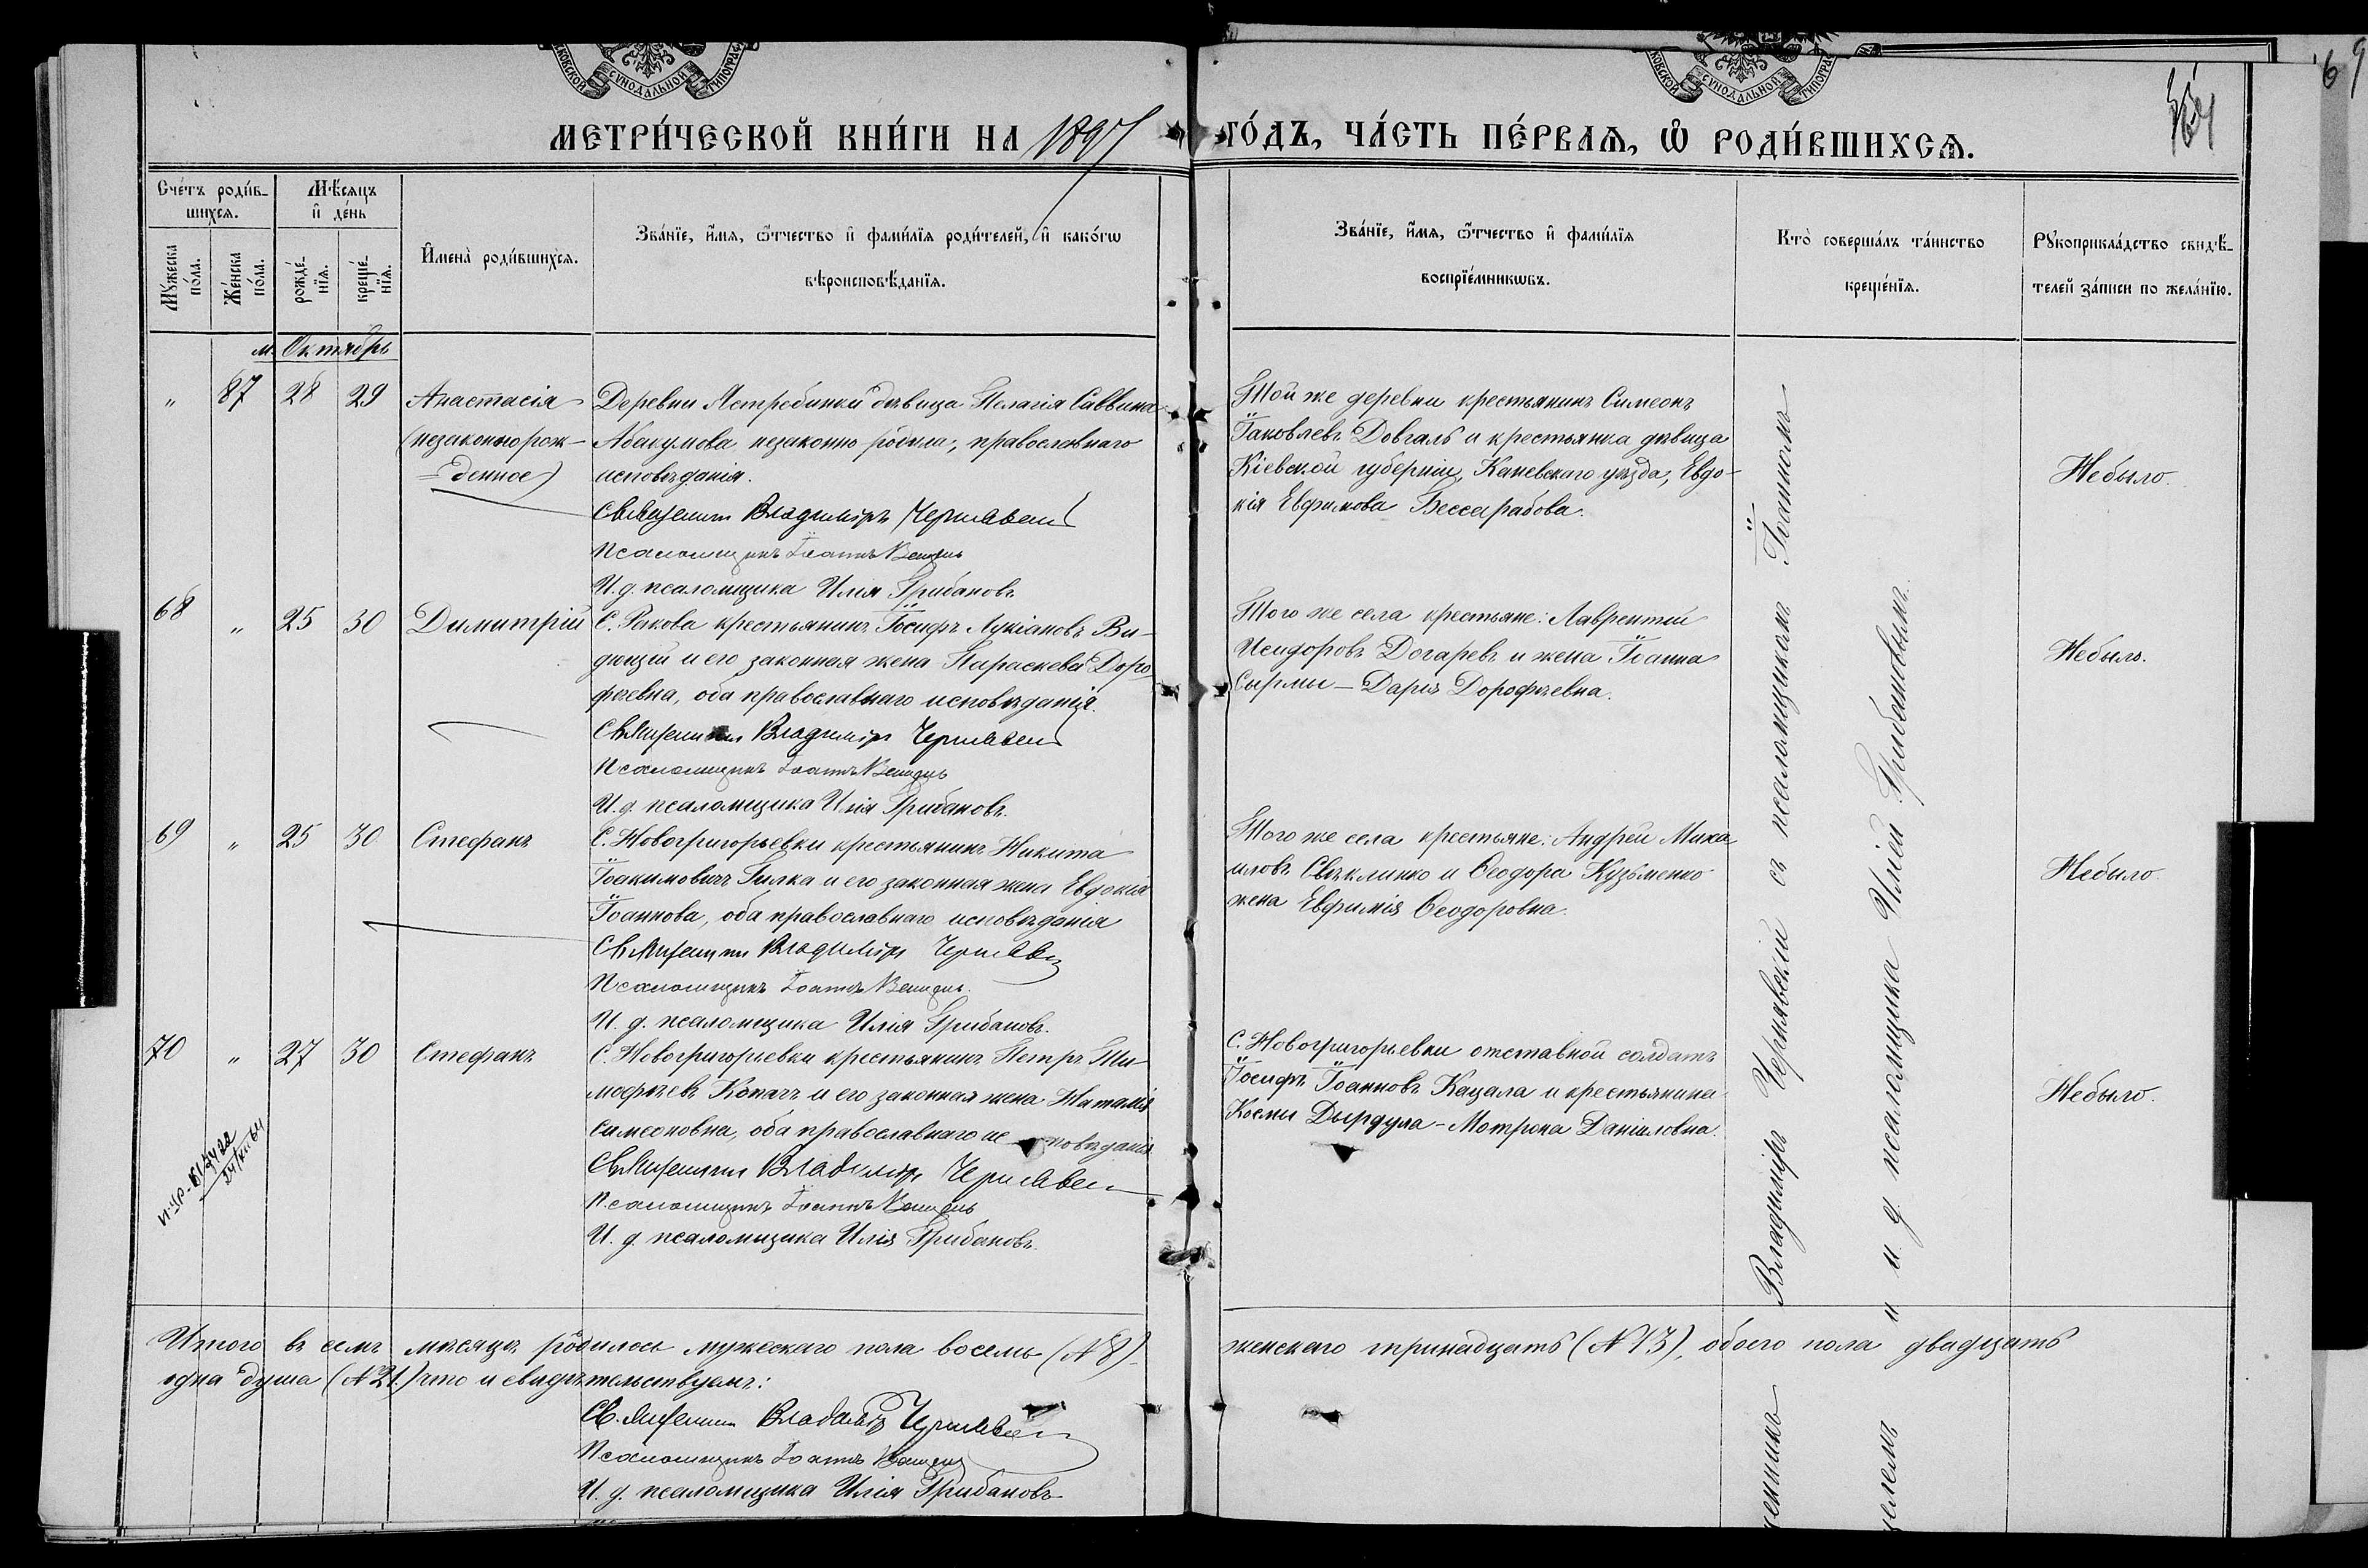 СѴНОДАЛЬНОЙ
СѴНОДАЛЬНОЙ
69
МЕТРИ́ЧЕСКОЙ КНИ́ГИ НА 1897 ГО́ДЪ, ЧА́СТЬ ПЕ́РВАѦ, Ѽ РОДИ́ВШИХСѦ.
Сче́тъ роди́в-
шихсѧ.
Мѣ́сѧцъ
и҆ де́нь
Мꙋ́жеска по́ла.
Же́нска по́ла.
рожде́-
нїѧ.
креще́-
нїѧ.
И҆мена̀ роди́вшихсѧ.
Зва́нїе, и҆́мѧ, ѻ҆́тчество и҆ фами́лїѧ роди́телей, и҆ како́гѡ
вѣроисповѣ́данїѧ.
Зва́нїе, и҆́мѧ, ѻ҆́тчество и҆ фами́лїѧ
воспрїе́мникѡвъ.
Кто̀ соверша́лъ та́инство
креще́нїѧ.
Рꙋкоприкла́дство свидѣ́-
телей за́писи по жела́нїю.
м. Октябрь
" 87 28 29 Анастасія
(незаконнорож-
=денное)
Деревни Ястребинки дѣвица Пелагія Саввина
Абакумова незаконно родила, православнаго
исповѣданія.
Священникъ Владиміръ Чернявскій
Псаломщикъ Іоаннъ
И. д. псаломщика Илія Грибановъ
Той же деревни крестьянинъ Симеонъ
Іаковлевъ Довгаль и крестьянка дѣвица
Кіевской губерніи, Каневскаго уѣзда, Евдо-
кія Евфимова Бессарабова.
Небыло.
68 " 25 30 Димитрій
С. Ракова крестьянинъ Іосифъ Лукіановъ Ви-
дющій и его законная жена Параскева Доро
фѣевна, оба православнаго исповѣданія.
Священникъ Владиміръ Чернявскій
Псаломщикъ Іоаннъ
И. д. псаломщика Илія Грибановъ.
Того же села крестьяне: Лаврентій
Исидоровъ Догаревъ и жена Іоанна
Сырмы – Дарія Дорофѣевна.
Небыло.
69 " 25 30 Стефанъ
С. Новогригорьевки крестьянинъ Никита
Іоакимовичъ Гилка и его законная жена Евдокія
Іоаннова, оба православнаго исповѣданія
Священникъ Владиміръ Чернявскій
Псаломщикъ Іоаннъ
И. д. псаломщика Илія Грибановъ.
Того же села крестьяне: Андрей Миха
иловъ Свѣклинко и Ѳеодора Кузьменко
жена Евфимія Ѳеодоровна.
Небыло.
70 " 27 30 Стефанъ
С. Новогригорьевки крестьянинъ Петръ Ти-
моѳѣевъ Копачъ и его законная жена Наталія
Симеоновна, оба православнаго исповѣданія
Священникъ Владиміръ Чернявскій
Псаломщикъ Іоаннъ
И. д. псаломщика Илія Грибановъ.
С. Новогригорьевки отставной солдатъ
Іосифъ Іоанновъ Кацала и крестьянина
Космы Дырдула – Мотрона Даніиловна.
Небыло.
Владиміръ Чернявскій съ псаломщикомъ Іоанномъ
и и. д. псаломщика Иліей Грибановымъ.
Итого въ семъ мѣсяцѣ родилось мужескаго пола восемь (№ 8) женскаго тринадцать (№ 13), обоего пола двадцать
одна душа (№ 21.) что и свидѣтельствуемъ:
Священникъ Владиміръ Чернявскій
Псаломщикъ Іоаннъ
И. д. псаломщика Илія Грибановъ